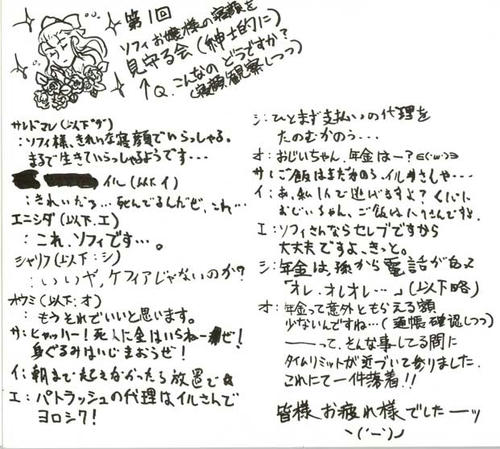 第1回
ソフィお嬢様の寝顔を
見守る会(紳士的に)
↑Q.こんなの どうですか?
(寝顔観察しつつ)
サルドマレ(以下サ)
:ソフィ様、きれいな寝顔でいらっしゃる。
まるで生きていらっしゃるようです…
イル(以下イ)
:きれいだろ…死んでるんだぜ、これ…
エニシダ(以下.エ)
:これ、ソフィです…。
シャリフ(以下:シ)
:いいや、ケフィアじゃないのか?
オウミ(以下:オ)
:もうそれでいいと思います。
サ:ヒャッハー!死人に金はいらねーぜ!
身ぐるみはいじまおうぜ!
イ:朝まで起きなかったら放置で
エ:パトラッシュの代理はイルさんで
ヨロシク!
シ:ひとまず支払いの代理を
たのむかのう…
オ:おじいちゃん、年金はー?
サ:ご飯はまだ
イ:あ、私1人で逃げますよ?
おじいちゃん、ご飯は
エ:ソフィさんならセレブですから
大丈夫ですよ、きっと。
シ:年金は、孫から電話が
「オレ、オレオレ…」(以下略)
オ:年金って意外ともらえる額
少ないんですね…(通帳確認しつつ)
ーって、そんな事してる間に
タイムリミットが近づいて参りました。
これにて一件落着!!
皆様お疲れ様でしたーッ